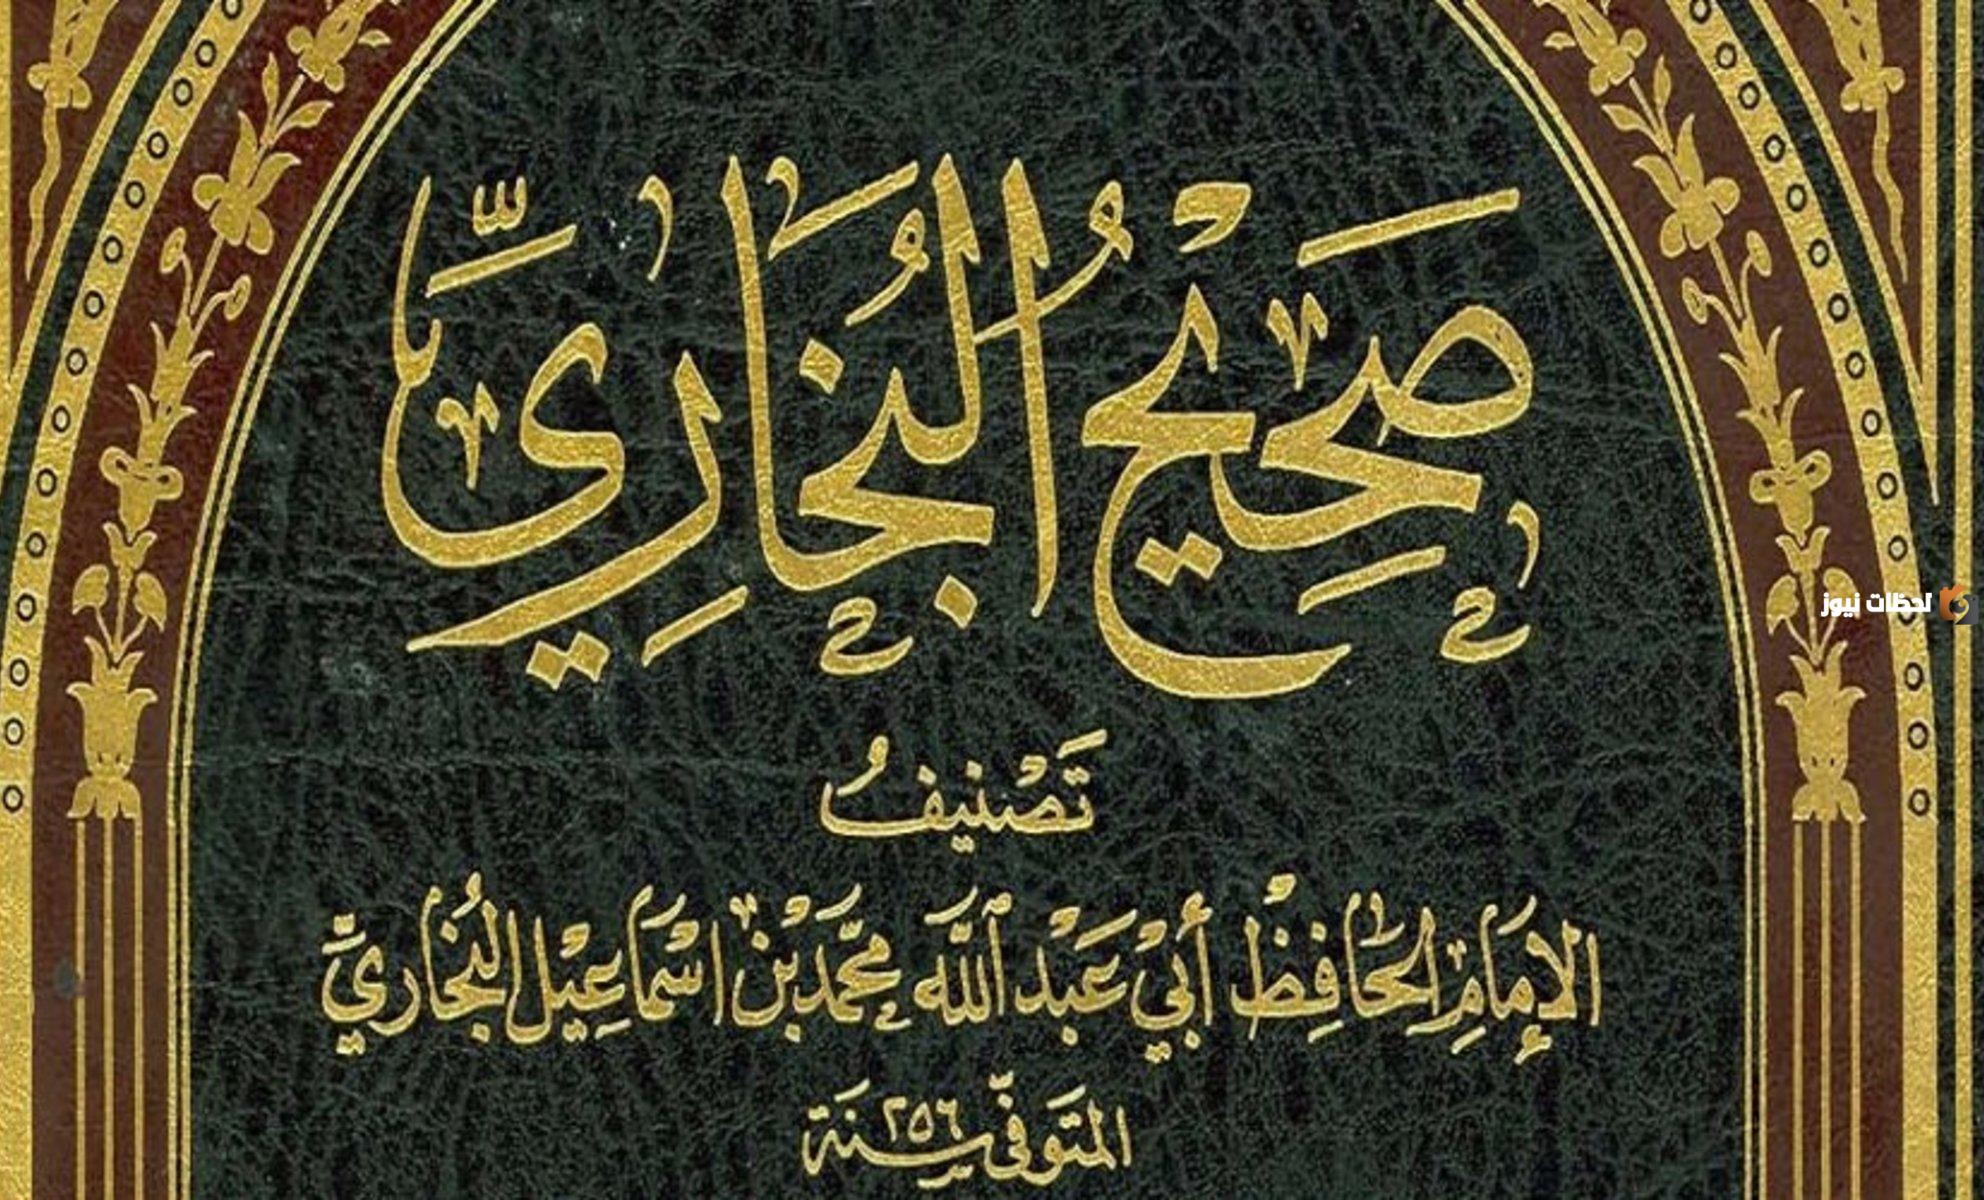 صَحِيْحُ البُخَارِيّ
تَصْنِيفُ
الإِمَامِ الحَافِظْ أَبيْ عَبْد اللَّه مُحَمَّد بْنْ اسْمَاعِيْل البُخَاريّ
المتَوَفّى سَنَة ٢٥٦
لحظات نيوز